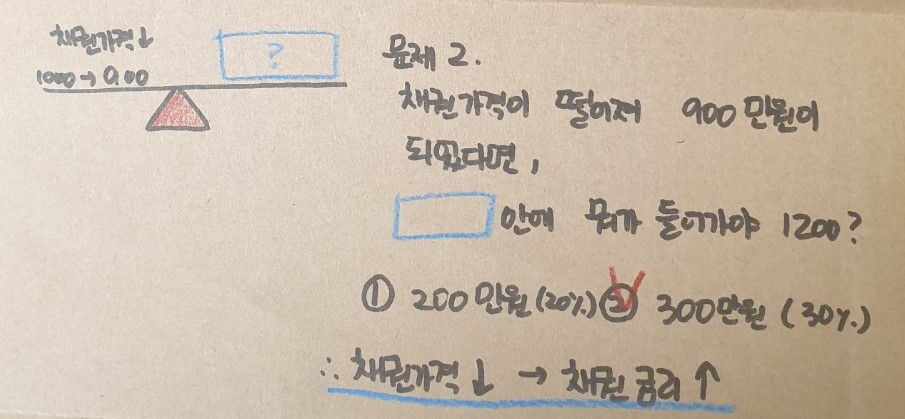 채권가격↓
1000→900
?
문제 2.
채권가격이 떨어져 900만원이
되었다면,
안에 뭐가 들어가야 1200?
① 200만원(20%) ② 300만원 (30%)
∴ 채권가격↓ → 채권금리↑